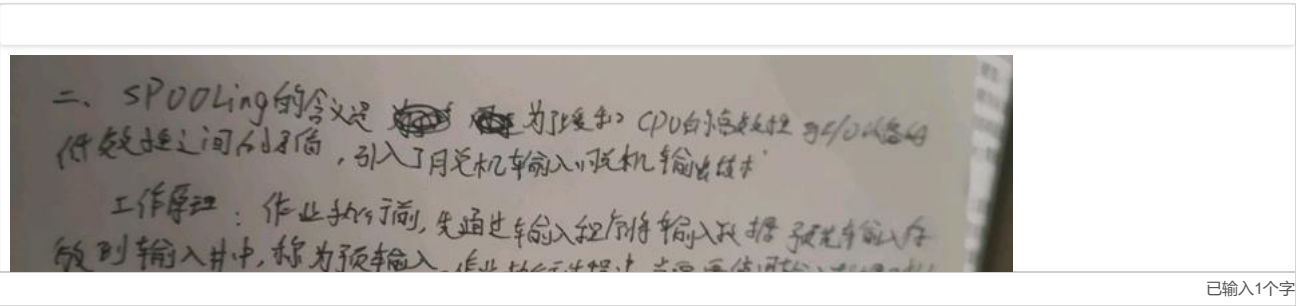 二、SPOOLing的含义是 为了缓和CPU的高效性与I/O设备的
低效性之间的矛盾,引入了脱机输入、脱机输出技术
工作原理:作业执行前,先通过输入程序将输入数据预先输入存
放到输入井中,称为预输入,作业执行过程中,当需要使用输入
已输入1个字